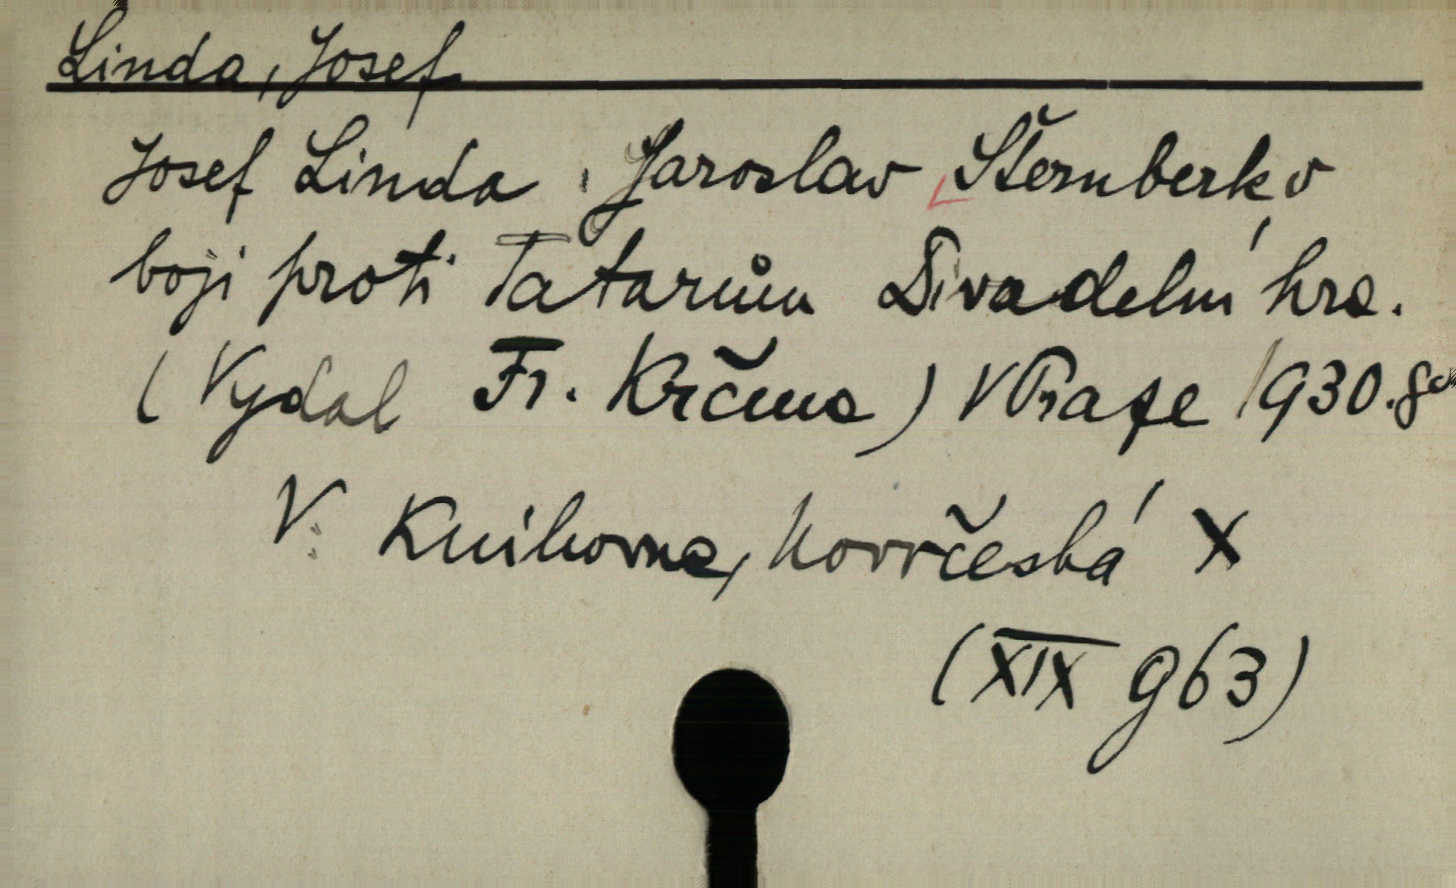 Linda, Josef
Josef Linda. Jaroslav Šternberk v
boji proti Tatarům Divadelní hra.
(Vydal Fr. Krčma) V Praze 1930. 8°
V: Knihovna, Novočeská X
(XIX g 63)